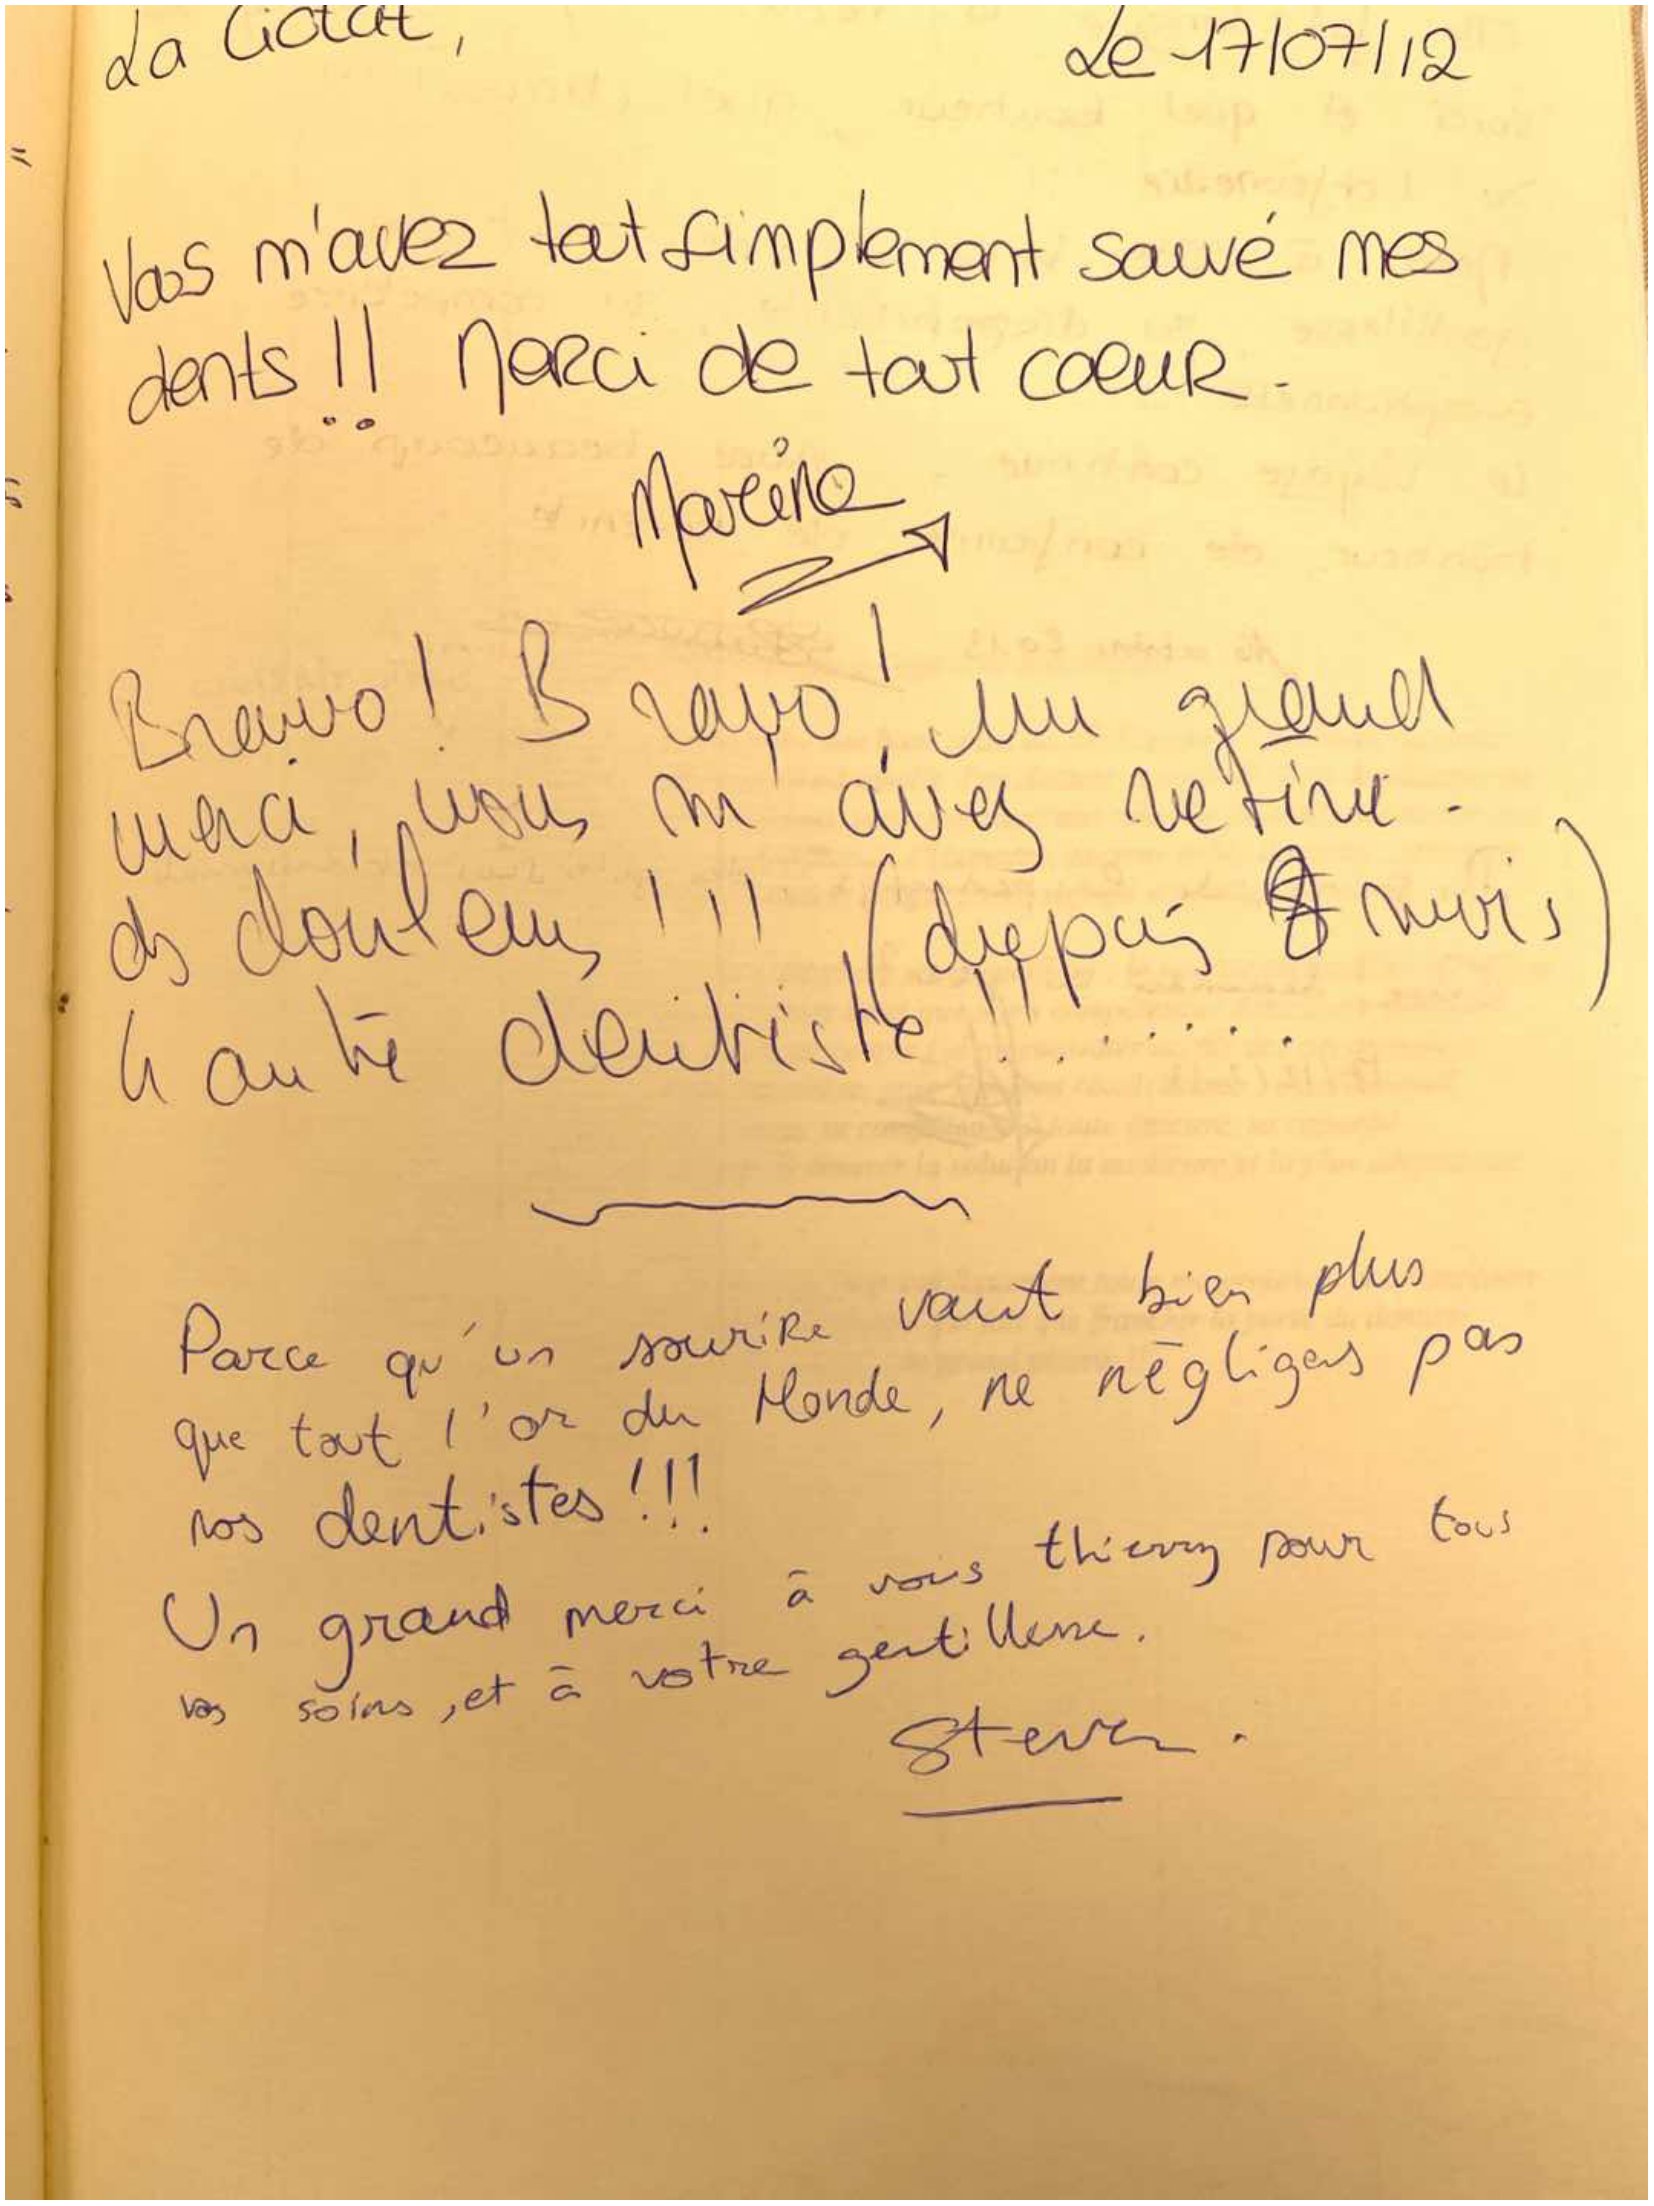 La Ciotat,
Le 17/07/12
Vous m'avez tout simplement sauvé mes
dents !! Merci de tout coeur.
Marine
Bravo ! Bravo ! un grand
merci, vous m'avez retiré
ds douleurs !!! (depuis 8 mois)
4 autre dentiste !! .......
Parce qu'un sourire vaut bien plus
que tout l'or du Monde, ne négligeons pas
nos dentistes !!!
Un grand merci à vous thierry pour tous
vos soins, et à votre gentillesse.
Steven.